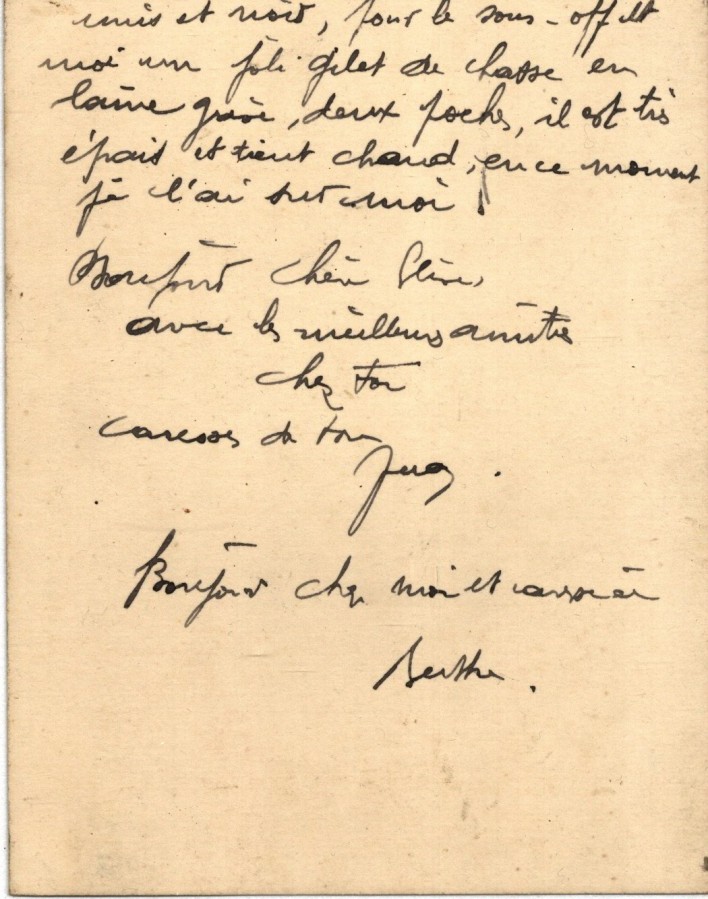 et noir, pour le sous-off et
moi un joli gilet de chasse en
laine grise, deux poches, il est très
épais et tient chaud, en ce moment
je l'ai sur moi !
Bonjour chère
avec les meilleures amitiés
chez toi
caresses de ton
Bonjour chez moi et caresse à
Berthe.